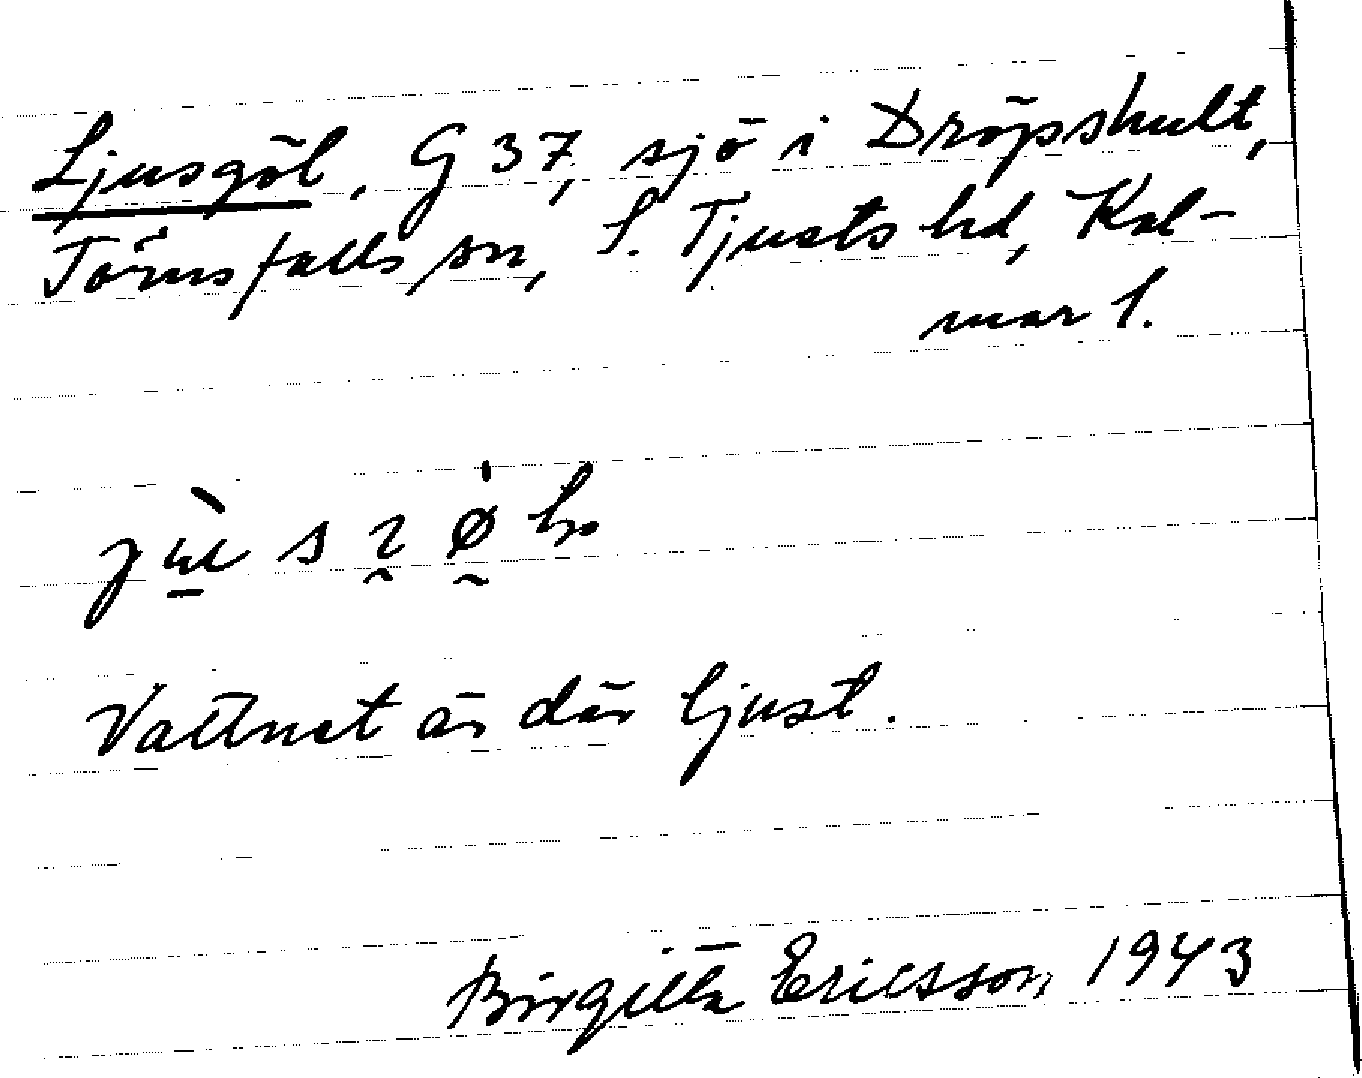 Ljusgöl, G 37, sjö i Dröpshult,
Törnsfalls sn, S. Tjusts hd, Kal-
mar l.
Vattnet är där ljust.
Birgitta Ericsson 1943